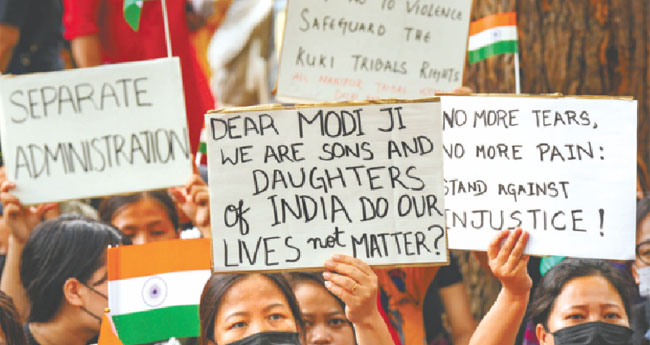 SEPARATE
ADMINISTRATION
TO VIOLENCE
SAFEGUARD THE
KUKI TRIBALS RIGHTS
DEAR MODI JI
WE ARE SONS AND
DAUGHTERS
of INDIA DO OUR
LIVES not MATTER?
NO MORE TEARS,
NO MORE PAIN:
STAND AGAINST
INJUSTICE!